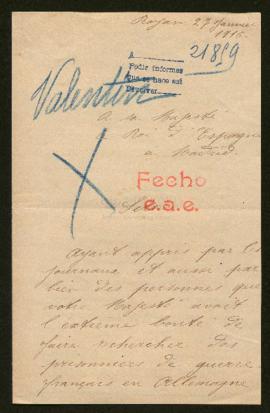 Royan 27 Janvier
1915.
21859
A
Pedir informes
que se hace así
Devolver
Valentin
A sa Majesté
Roi d'Espagne
à Madrid.
Fecho
e.a.e.
Ayant appris par les
journaux et aussi par
bien des personnes que
votre Majesté avait
l'extrème bonté de
faire rechercher des
prisonniers de guerre
français en Allemagne